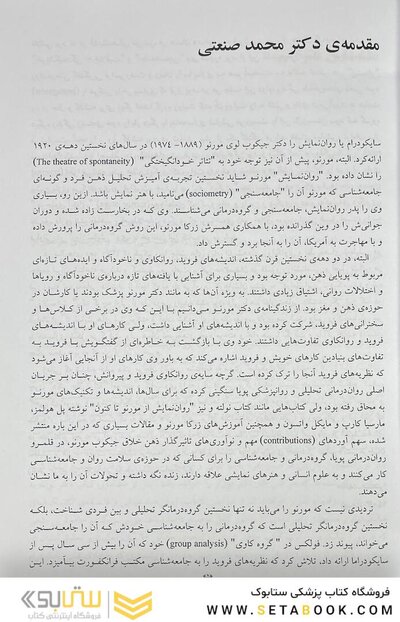 مقدمه‌ی دکتر محمد صنعتی
سایکودرام یا روان‌نمایش را دکتر جیکوب لوی مورنو (۱۸۸۹- ۱۹۷۴) در سال‌های نخستین دهه‌ی ۱۹۲۰
ارائه‌کرد. البته، مورنو، پیش از آن نیز توجه خود به "تئاتر خودانگیختگی" (The theatre of spontaneity)
را نشان داده بود. "روان‌نمایش" مورنو شاید نخستین تجربه‌ی آمیزش تحلیل ذهن فرد و گونه‌ای
جامعه‌شناسی که مورنو آن را "جامعه‌سنجی" (sociometry) می‌نامید، با هنر نمایش باشد. ازین رو، بسیاری
وی را پدر روان‌نمایش، جامعه‌سنجی و گروه‌درمانی می‌شناسند. وی که در بخارست زاده شده و دوران
جوانی‌ش را در وین گذرانده بود، با همکاری همسرش زرکا مورنو، این روش گروه‌درمانی را پرورش داده
و با مهاجرت به آمریکا، آن را به آنجا برد و گسترش داد.
البته، در دو دهه‌ی نخستین قرن گذشته، اندیشه‌های فروید، روانکاوی و ناخودآگاه و ایده‌های تازه‌ای
مربوط به پویایی ذهن، مورد توجه بود و بسیاری برای آشنایی با یافته‌های تازه درباره‌ی ناخودآگاه و رویاها
و اختلالات روانی، اشتیاق زیادی داشتند. به ویژه آن‌ها که به مانند دکتر مورنو پزشک بودند یا کارشان در
حوزه‌ی ذهن و مغز بود. از زندگینامه‌ی دکتر مورنو می‌دانیم با این که وی در برخی از کلاس‌ها و
سخنرانی‌های فروید، شرکت کرده بود و با اندیشه‌های او آشنایی داشت، ولی کارهای او با اندیشه‌های
فروید و روانکاوی تفاوت‌هایی داشتند. خود وی با بازگشت به خاطره‌ای از گفتگویش با فروید به
تفاوت‌های بنیادین کارهای خویش و فروید اشاره می‌کند که به باور وی کارهای او از آنجایی آغاز می‌شود
که نظریه‌های فروید آنجا را ترک کرده است. گرچه سایه‌ی روانکاوی فروید و پیروانش، چنان بر جریان
اصلی روان‌درمانی تحلیلی و روانپزشکی پویا سنگینی کرده که برای سال‌ها، اندیشه‌ها و تکنیک‌های مورنو
به محاق رفته بود، ولی کتاب‌هایی مانند کتاب نوله و نیز "روان‌نمایش از مورنو تا کنون" نوشته پل هولمز،
مارسیا کارپ و مایکل واتسون و همچنین آموزش‌های زرکا مورنو و مقالات بسیاری که در این باره منتشر
شده، سهم آوردهای (contributions) مهم و نوآوری‌های تاثیرگذار ذهن خلاق جیکوب مورنو، در قلمرو
روان‌درمانی پویا، گروه‌درمانی و جامعه‌شناسی را برای کسانی که در حوزه‌ی سلامت روان و جامعه‌شناسی
کار می‌کنند و به علوم انسانی و هنرهای نمایشی علاقه دارند، زنده نگه داشته و تحولات آن را به ما نشان
می‌دهند.
تردیدی نیست که مورنو را می‌باید نه تنها نخستین گروه‌درمانگر تحلیلی و بین فردی شناخت، بلکه
نخستین گروه‌درمانگر تحلیلی است که گروه‌درمانی را به جامعه‌شناسی خودش که آن را جامعه‌سنجی
می‌خواند، پیوند زد. فولکس در "گروه کاوی" (group analysis) خود که آن را بیش از سی سال پس از
سایکودراما ارائه داد، تلاش کرد که نظریه‌های فروید را به جامعه‌شناسی مکتب فرانکفورت بیامیزد. این
فروشگاه کتاب پزشکی ستابوک
WWW.SETABOOK.COM
ستابوک
فروشگاه اینترنتی کتاب